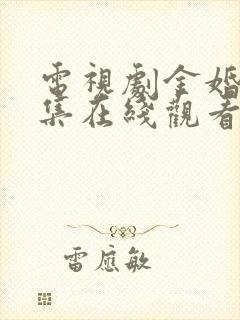 電視劇金婚
集在綫觀看
雷應敏